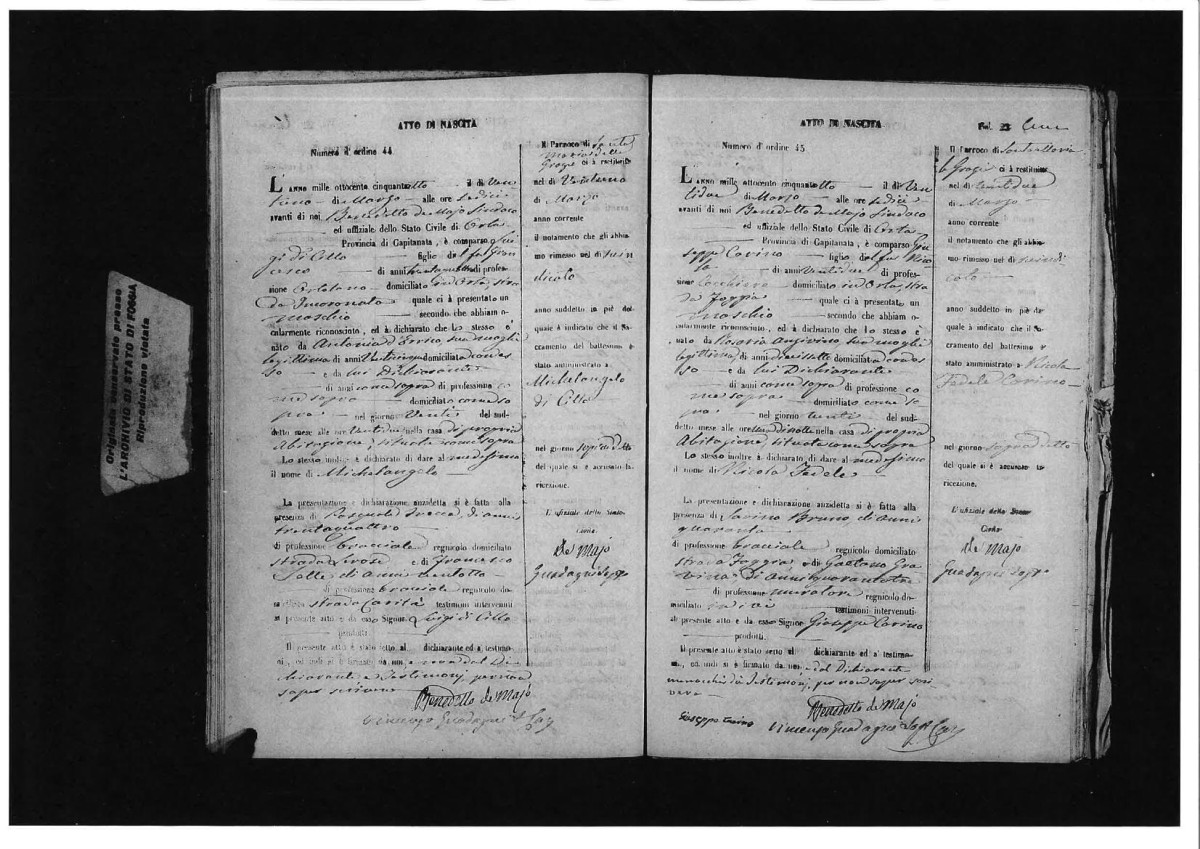 Originale conservato presso
L'ARCHIVIO DI STATO DI FOGGIA
Riproduzione vietata
ATTO DI NASCITA
Numero d'ordine 44
L'ANNO mille ottocento cinquantotto il dì Ven
tuno di Marzo alle ore sedici
avanti di noi Benedetto de Majo Sindaco
ed uffiziale dello Stato Civile di Orta
Provincia di Capitanata, è comparso Lui
gi di Cillo figlio del fu
di anni di profes-
sione Ortolano domiciliato in Orta, stra
da Incoronata quale ci à presentato un
maschio secondo che abbiam o-
cularmente riconosciuto, ed à dichiarato che lo stesso è
nato da Antonia d'Errico sua moglie
legittima di anni domiciliata con es
so e da lui Dichiarante
di anni come sopra di professione co
me sopra domiciliato come so
pra nel giorno Venti del sud-
detto mese alle ore ventidue nella casa di propria
Abitazione, situata come sopra
Lo stesso inoltre à dichiarato di dare al medesimo
il nome di Michelangelo
La presentazione e dichiarazione anzidetta si è fatta alla
presenza di Pasquale di anni
trentaquattro
di professione bracciale regnicolo domiciliato
strada e di Francesco
di anni ventotto
di professione bracciale regnicolo do-
miciliato strada Carità testimoni intervenuti
al presente atto e da esso Signor Luigi di Cillo
prodotti.
Il presente atto è stato letto al dichiarante ed a' testimo-
ni, ed indi si è firmato da noi e non dal Di
chiarante e Testimoni, per non
saper scrivere
Benedetto de Majo
Vincenzo Guadagni
Il Parroco di Santa
Maria delle
Grazie ci à restituito
nel dì Ventuno
di Marzo
anno corrente
il notamento che gli abbia-
mo rimesso nel dì ven
anno suddetto in piè del
quale à indicato che il Sa-
cramento del battesimo è
stato amministrato a
Michelangelo
di Cillo
nel giorno sopradetto
del quale si è accusato la
ricezione.
L'uffiziale dello Stato
Civile
de Majo
Guadagni
ATTO DI NASCITA
Numero d'ordine 45
L'ANNO mille ottocento cinquantotto il dì Ven
tidue di Marzo alle ore sedici
avanti di noi Benedetto de Majo Sindaco
ed uffiziale dello Stato Civile di Orta
Provincia di Capitanata, è comparso Giu
seppe Corino figlio del fu Nico
la di anni Ventidue di profes-
sione Cocchiere domiciliato in Orta, stra
da Foggia quale ci à presentato un
maschio secondo che abbiam o-
cularmente riconosciuto, ed à dichiarato che lo stesso è
nato da Rosaria sua moglie
legittima di anni diecisette domiciliata con es
so e da lui Dichiarante
di anni come sopra di professione co
me sopra domiciliato come so
pra nel giorno venti del sud-
detto mese alle ore di notte nella casa di propria
Abitazione, situata come sopra
Lo stesso inoltre à dichiarato di dare al medesimo
il nome di Nicola Fedele
La presentazione e dichiarazione anzidetta si è fatta alla
presenza di Savino Bruno, di anni
quaranta
di professione bracciale regnicolo domiciliato
strada Foggia e di Gaetano Gra
vina, di anni
di professione muratore regnicolo do-
miciliato ivi testimoni intervenuti
al presente atto e da esso Signor Giuseppe Corino
prodotti.
Il presente atto è stato letto al dichiarante ed a' testimo-
ni, ed indi si è firmato da noi e dal Dichiarante
Testimoni, per non saper scri
vere
Benedetto de Majo
Giuseppe Corino Vincenzo Guadagni
Fol.
Il Parroco di Santa Maria
le Grazie ci à restituito
nel dì ventidue
di Marzo
anno corrente
il notamento che gli abbia-
mo rimesso nel dì
anno suddetto in piè del
quale à indicato che il Sa-
cramento del battesimo è
stato amministrato a Nicola
Fedele Corino
nel giorno sopradetto
del quale si è accusato la
ricezione.
L'uffiziale dello Stato
Civile
de Majo
Guadagni